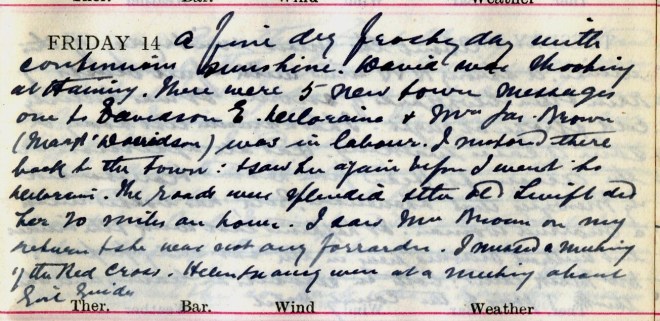 Ther. Bar. Wind Weather
FRIDAY 14 A fine dry frosty day with
continuous sunshine. David was shooting
at Haining. There were 5 new town messages
one to Davidson E. Deloraine & Mrs Jas. Brown
(Margt Davidson) was in labour. I motored there
back to the town: I saw her again before I went to
Deloraine. The roads were splendid & the old Swift did
her 20 miles an hour. I saw Mrs Brown on my
return & she was not any forrarder. I missed a meeting
of the Red Cross. Helen & were at a meeting about
Girl Guides
Ther. Bar. Wind Weather